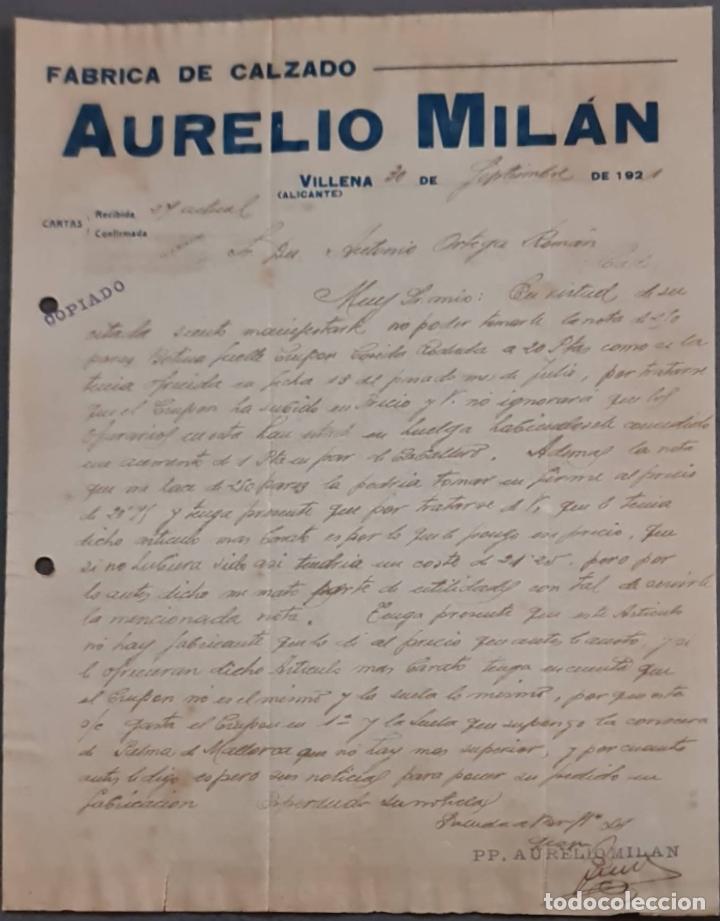 FABRICA DE CALZADO
AURELIO MILÁN
VILLENA 30 DE Septiembre DE 1921
(ALICANTE)
CARTAS Recibida 27 actual
Confirmada
Sr. Dn Antonio Ortega Román
COPIADO
Muy Sr mio: En virtud de su
citada siento manifestarle no poder tomarle la nota de
pares fuelle Crupon Cosida a 20 Ptas como se la
tenia ofrecida en fecha 18 de pasado mes de Julio, por tratarse
que el Crupon ha subido en precio y V. no ignorará que los
operarios en esta han en huelga habiendosele concedido
un aumento de 1 Pta en par de Caballero. Ademas la nota
que me hace de pares la podria tomar en firme al precio
de y tenga presente que por tratarse de V, que le tenia
dicho articulo mas barato es por lo que le pongo en precio, que
si no hubiera sido asi tendria un coste de 21'25. pero por
lo antes dicho me parte de utilidades con tal de servirle
la mencionada nota. Tenga presente que este Articulo
no hay fabricante que lo di al precio que antes y si
le ofrecieran dicho Articulo mas barato tenga en cuenta que
el Crupon no es el mismo y la suela lo mismo, por que esta
s/c gasta el Crupon en 1ª y la suela que supongo la conocera
de Palma de Mallorca que no hay mas superior, y por cuanto
antes le digo espero sus noticias para poner su pedido en
fabricacion Esperando su noticias
Saluda a V.
PP. AURELIO MILAN
todocoleccion
todocoleccion.net